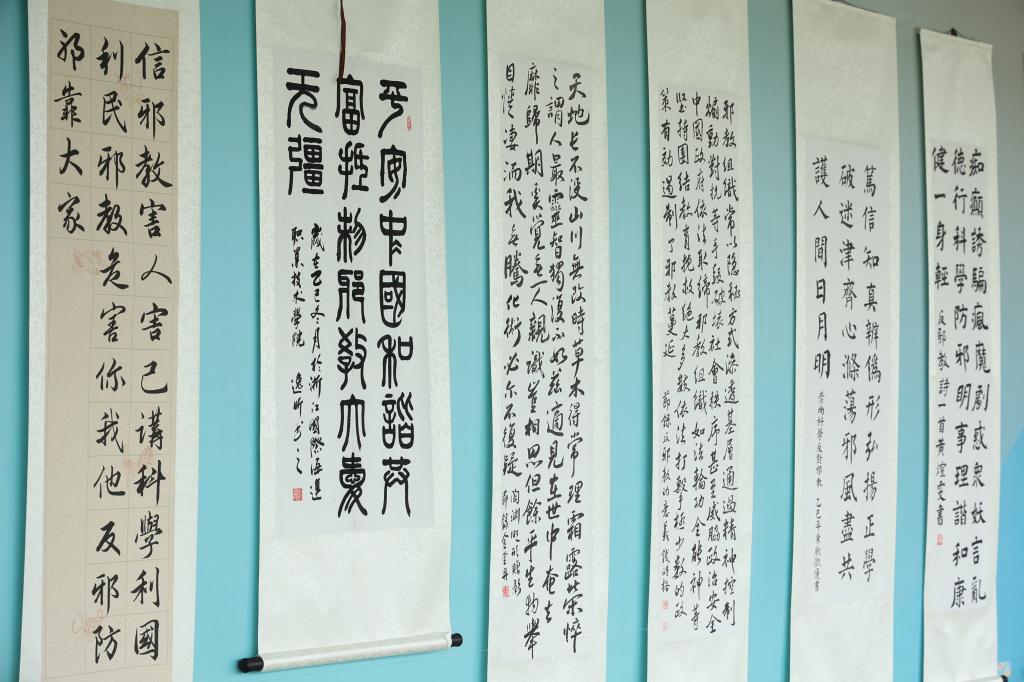 信邪教害人害己講科學利國
利民邪教危害你我他反邪防
邪靠大家
平安中國和諧共
富抵制邪教大愛
无疆
歲在乙巳冬月於浙江國際海運
职業技术學院 逸昕书之
天地长不沒山川無改時草木得常理霜露榮悴
之謂人最靈智獨復不如茲適見在世中奄去
靡歸期奚覺無一人親識豈相思但餘平生物舉
目情凄洏我無騰化術必尔不復疑
陶淵明形贈影
節錄
邪教組織常以隐秘方式滲透基層通過精神控制
煽動對抗等手段破壞社會秩序甚至威脇政治安全
中國政府依法取締邪教組織如法輪功全能神等
坚持團結教育挽救絕大多數依法打擊極少數的政
策有効遏制了邪教蔓延
節錄反邪教的意義
篤信知真辨僞形弘揚正學
破迷津齊心滌蕩邪風盡共
護人間日月明
崇尚科學反對邪教 乙巳年
痴癲誘騙瘋魔劇惑衆妖言亂
德行科學防邪明事理諧和康
健一身輕
反邪教詩一首黄煊雯書